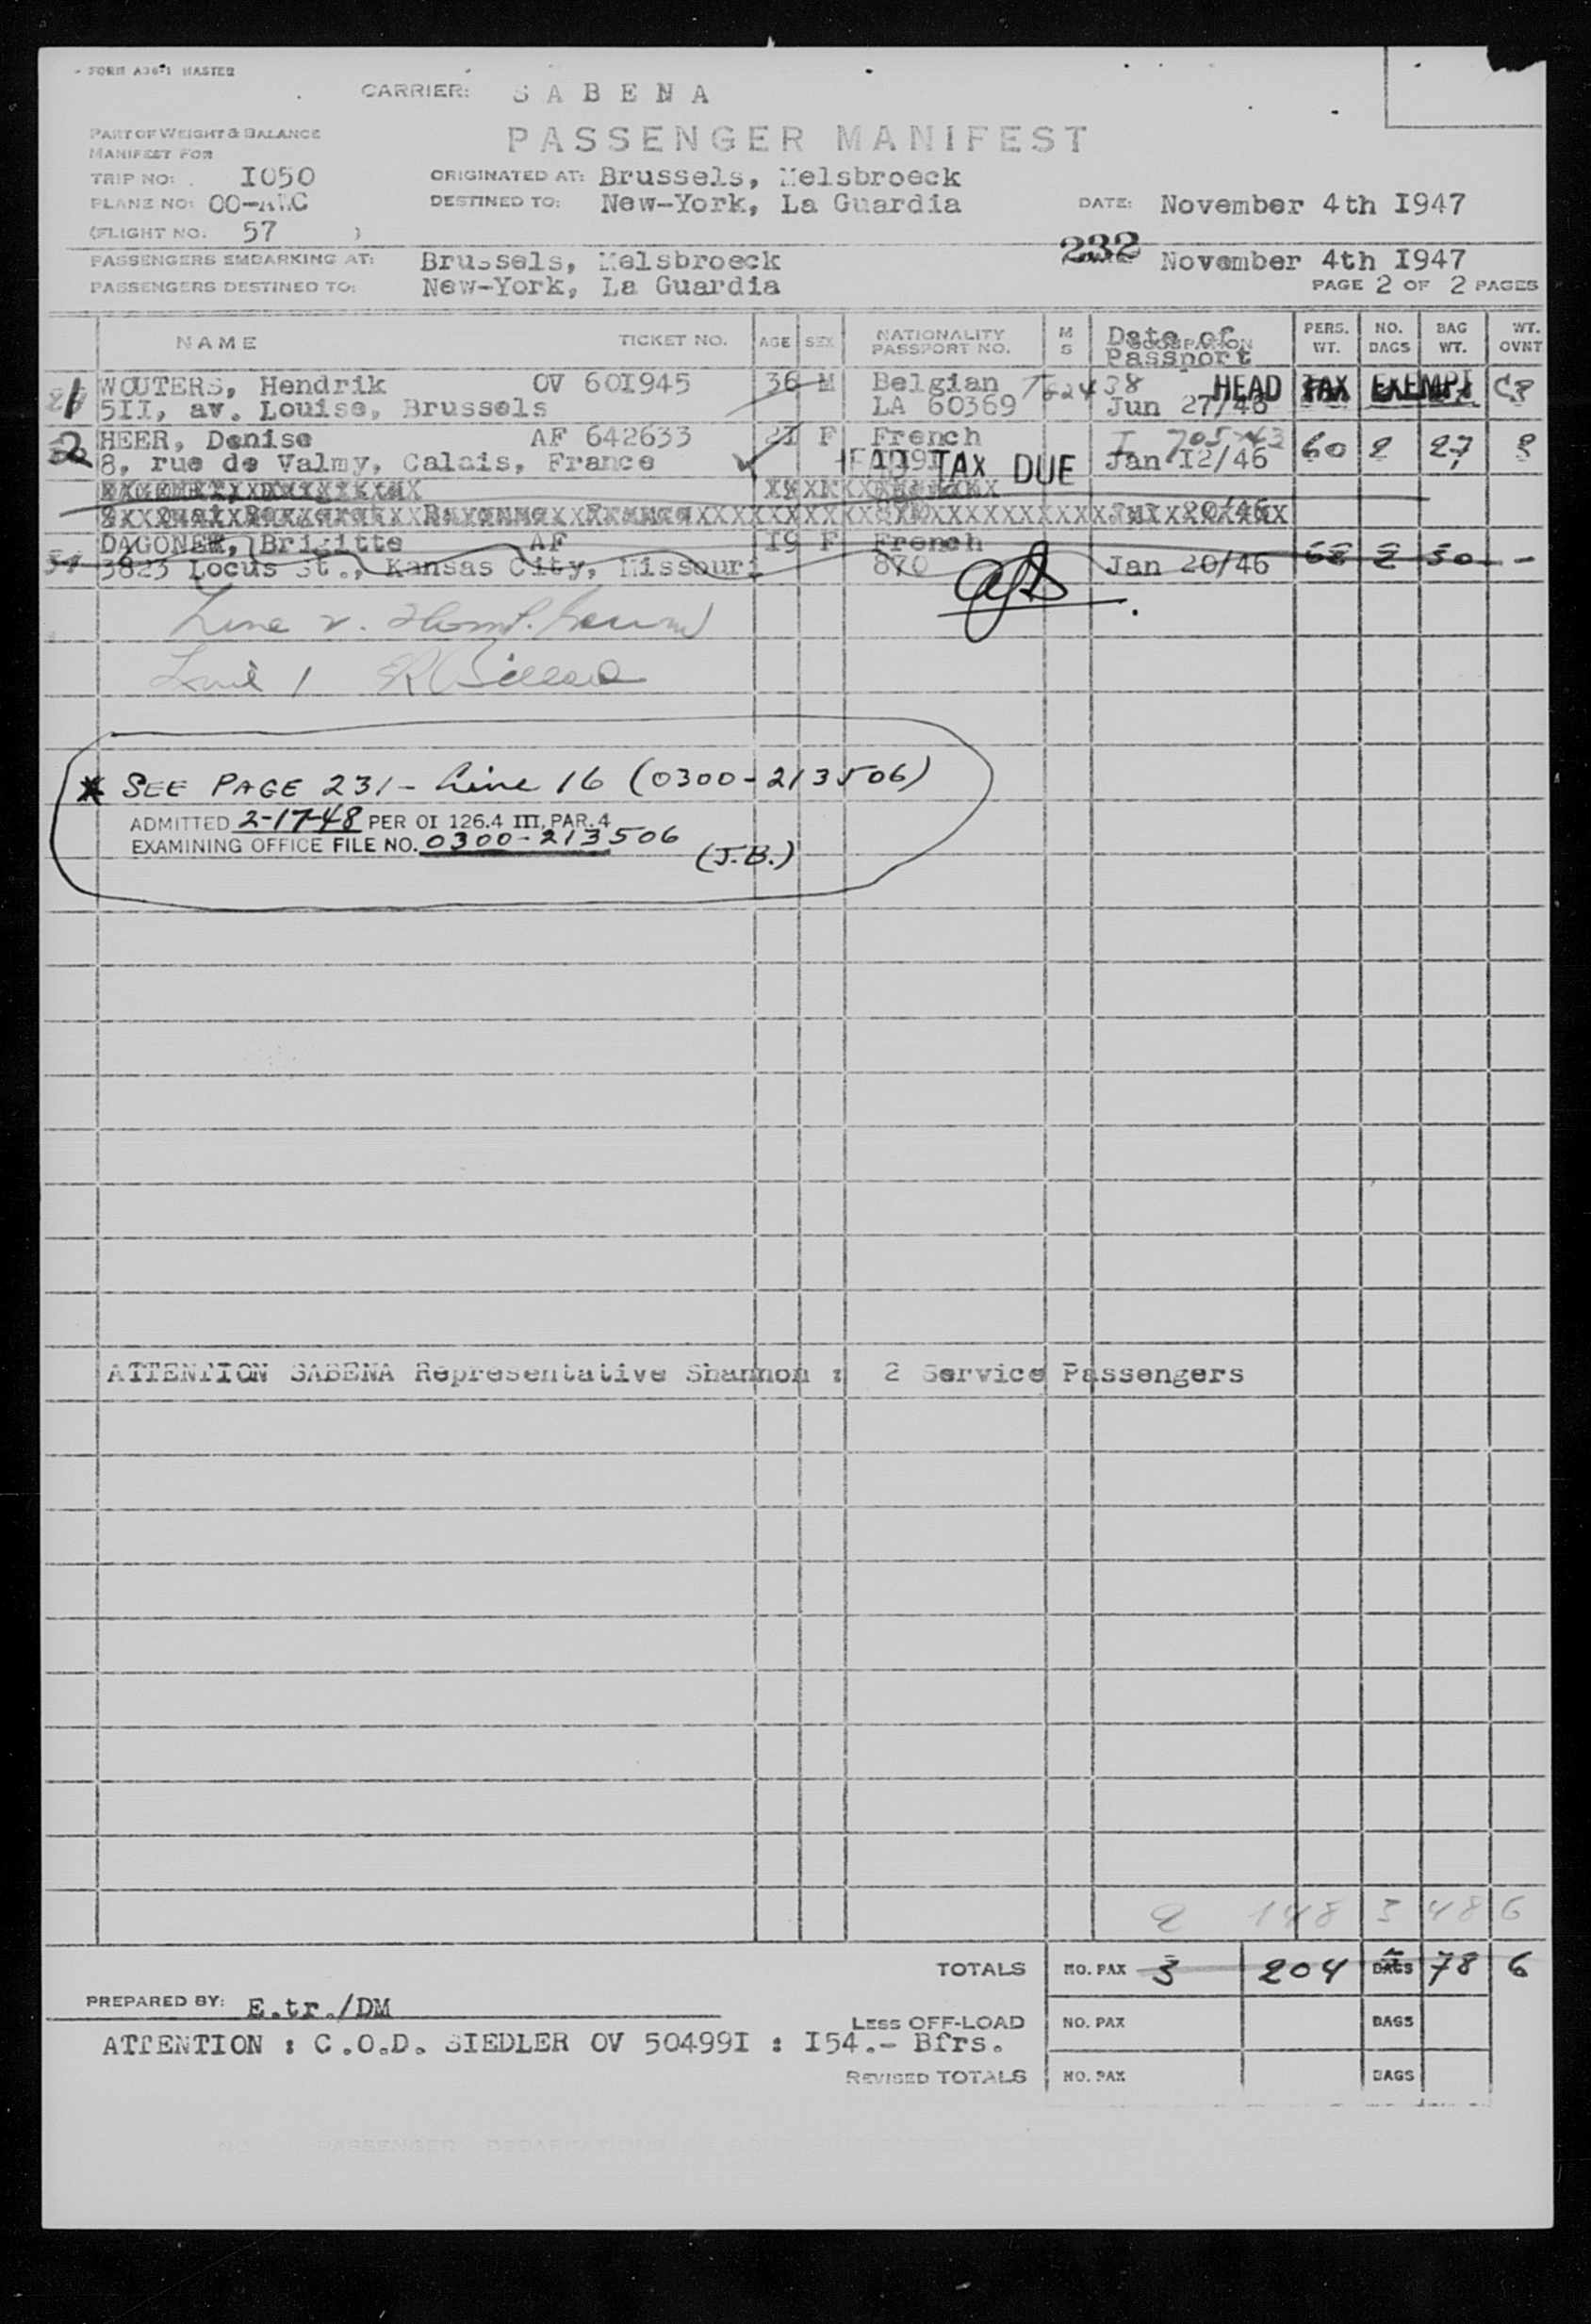 FORM A36-1 MASTER
CARRIER: SABENA
PART OF WEIGHT & BALANCE
MANIFEST FOR
PASSENGER MANIFEST
TRIP NO: I050
ORIGINATED AT: Brussels, Melsbroeck
PLANE NO: OO-AWC
DESTINED TO: New-York, La Guardia
DATE: November 4th I947
(FLIGHT NO. 57 )
232
PASSENGERS EMBARKING AT: Brussels, Melsbroeck
November 4th I947
PASSENGERS DESTINED TO: New-York, La Guardia
PAGE 2 OF 2 PAGES
NAME TICKET NO. AGE SEX NATIONALITY PASSPORT NO. M S Date of Passport PERS. WT. NO. BAGS BAG WT. WT. OVNT
1 WOUTERS, Hendrik OV 60I945 36 M Belgian HEAD TAX EXEMPT
5II, av. Louise, Brussels LA 60369 Jun 27/46
2 HEER, Denise AF 642633 2I F French 60 2 27
8, rue de Valmy, Calais, France TAX DUE Jan I2/46
DAGONET, Brigitte AF I9 F French 68 2 30 -
3823 Locus St., Kansas City, Missouri 870 Jan 20/46
* SEE PAGE 231 - Line 16 (0300-213506)
ADMITTED 2-17-48 PER OI 126.4 III, PAR. 4
EXAMINING OFFICE FILE NO. 0300-213506
(J.B.)
ATTENTION SABENA Representative Shannon : 2 Service Passengers
2 148 3 48 6
TOTALS NO. PAX 3 204 BAGS 78 6
PREPARED BY: E.tr./DM
LESS OFF-LOAD NO. PAX BAGS
ATTENTION : C.O.D. SIEDLER OV 50499I : I54.- Bfrs.
REVISED TOTALS NO. PAX BAGS